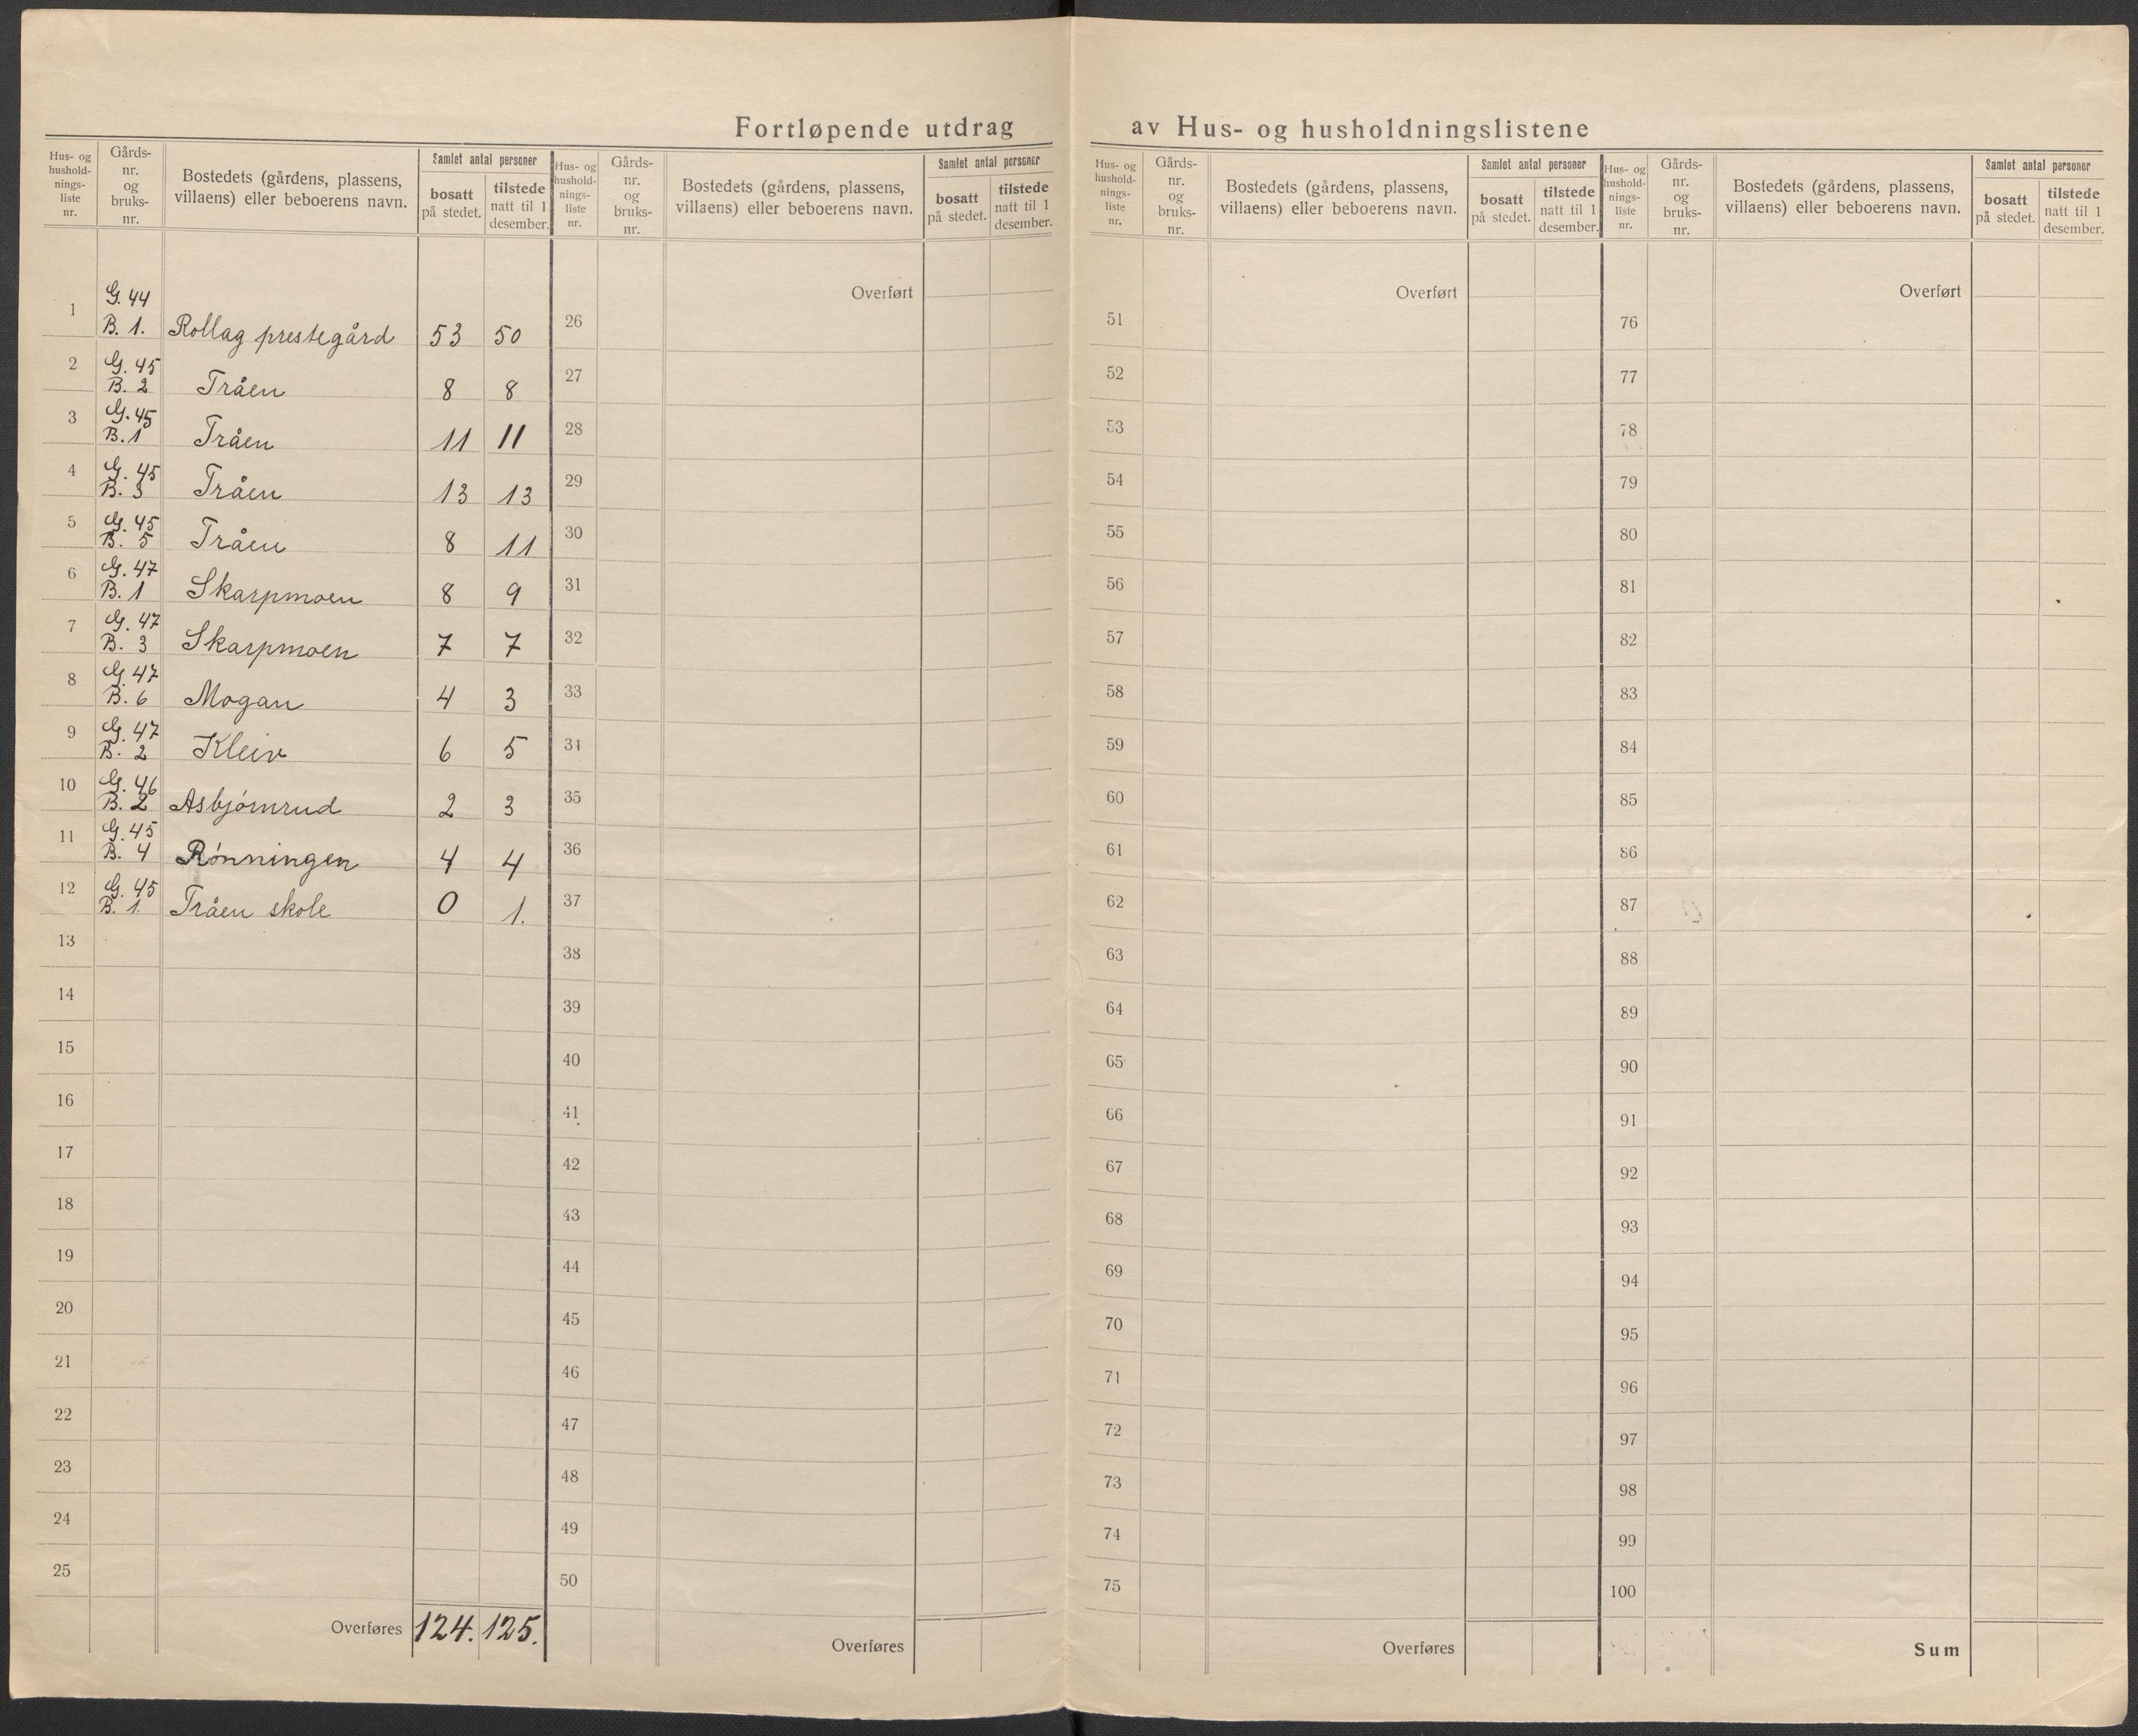 Fortløpende utdrag av Hus- og husholdningslistene
Hus- og hushold-nings-liste nr.
Gårds-nr. og bruks-nr.
Bostedets (gårdens, plassens, villaens) eller beboerens navn.
Samlet antal personer
bosatt på stedet.
tilstede natt til 1 desember.
1 G. 44 B. 1. Rollag prestegård 53 50
2 G. 45 B. 2 Tråen 8 8
3 G. 45 B. 1 Tråen 11 11
4 G. 45 B. 3 Tråen 13 13
5 G. 45 B. 5 Tråen 8 11
6 G. 47 B. 1 Skarpmoen 8 9
7 G. 47 B. 3 Skarpmoen 7 7
8 G. 47 B. 6 Mogan 4 3
9 G. 47 B. 2 Kleiv 6 5
10 G. 46 B. 2 Asbjørnrud 2 3
11 G. 45 B. 4 Rønningen 4 4
12 G. 45 B. 1. Tråen skole 0 1.
13
14
15
16
17
18
19
20
21
22
23
24
25
Overføres 124. 125.
Hus- og hushold-nings-liste nr.
Gårds-nr. og bruks-nr.
Bostedets (gårdens, plassens, villaens) eller beboerens navn.
Samlet antal personer
bosatt på stedet.
tilstede natt til 1 desember.
Overført
26
27
28
29
30
31
32
33
34
35
36
37
38
39
40
41
42
43
44
45
46
47
48
49
50
Overføres
Hus- og hushold-nings-liste nr.
Gårds-nr. og bruks-nr.
Bostedets (gårdens, plassens, villaens) eller beboerens navn.
Samlet antal personer
bosatt på stedet.
tilstede natt til 1 desember.
Overført
51
52
53
54
55
56
57
58
59
60
61
62
63
64
65
66
67
68
69
70
71
72
73
74
75
Overføres
Hus- og hushold-nings-liste nr.
Gårds-nr. og bruks-nr.
Bostedets (gårdens, plassens, villaens) eller beboerens navn.
Samlet antal personer
bosatt på stedet.
tilstede natt til 1 desember.
Overført
76
77
78
79
80
81
82
83
84
85
86
87
88
89
90
91
92
93
94
95
96
97
98
99
100
Sum